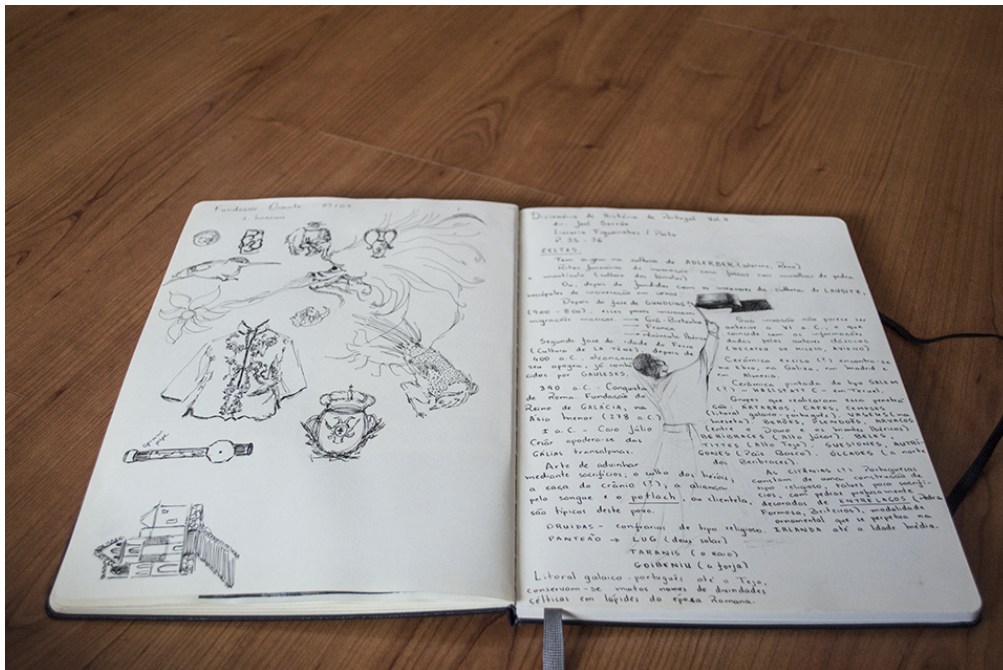 Fundação Oriente
Dicionário de História de Portugal Vol. II
de Joel Serrão
Livraria Figueirinhas / Porto
P. 35 - 36
CELTAS.
Tem origem na cultura de
Ritos funerários de incineração com fossas com muralhas de pedra
e mantículo (cultura dos túmulos)
Ou, depois de fundidos com os invasores da cultura de LAUSITZ,
de incineração em urnas.
Depois da fase de
(900 - 800), esses povos iniciaram
migrações massivas → Grã-Bretanha
→ França
→ Península Ibérica
Segunda fase da idade do Ferro
(Cultura de LA TÈNE), depois de
400 a.C., alcançam
seu apogeu, já conhe
cidos por GAULESES.
390 a.C. - Conquista
de Roma. Fundação do
Reino de GALÁCIA, na
Ásia menor (278 a.C.)
I a.C. - Caio Júlio
César apodera-se das
GÁLIAS transalpinas.
Arte de adivinhar
mediante sacrifícios, o culto dos heróis,
a caça do crânio (!), a aliança
pelo sangue e o potlach, ou clientela,
são típicos deste povo.
DRUIDAS - confrarias de tipo religioso.
PANTEÃO → LUG (deus solar)
TARANIS (o raio)
GOIBENIU (a forja)
Litoral galaico-português até o Tejo,
conservam-se muitos nomes de divindades
célticas em lápides da época Romana.
Sua invasão não parece ser
anterior a VI a.C., o que
coincide com as informações
dadas pelos autores clássicos
(HECATEU DE MILETO, AVIENO)
Cerâmica excisa (!) encontra-se
no Ebro, na Galiza, em Madrid e
em Almeria.
Cerâmica pintada de tipo SALEM
(!) - HALLSTATT C - em Teruel.
Grupos que realizaram essa penetra
ção: ÁRTABROS, CAPES, CEMPSES
(litoral galaico-português),
BERÕES, PLENDÕES, ARVACOS
(entre o Douro e os montes Ibéricos)
BERIBRACES (Alto Júcar), BELES,
TITTES (Alto Tejo), SUESSIONES, AUTRI
GONES (País Basco), ÓLCADES (a norte
dos Beribraces).
AS CITÂNIAS (!) Portuguesas
constam de uma construção de
tipo religioso, talvez para sacrifí-
cios, com pedras profusamente
decoradas de ENTRELAÇOS (Pedra
Formosa, Briteiros), modalidade
ornamental que se perpetua na
IRLANDA até a Idade Média.